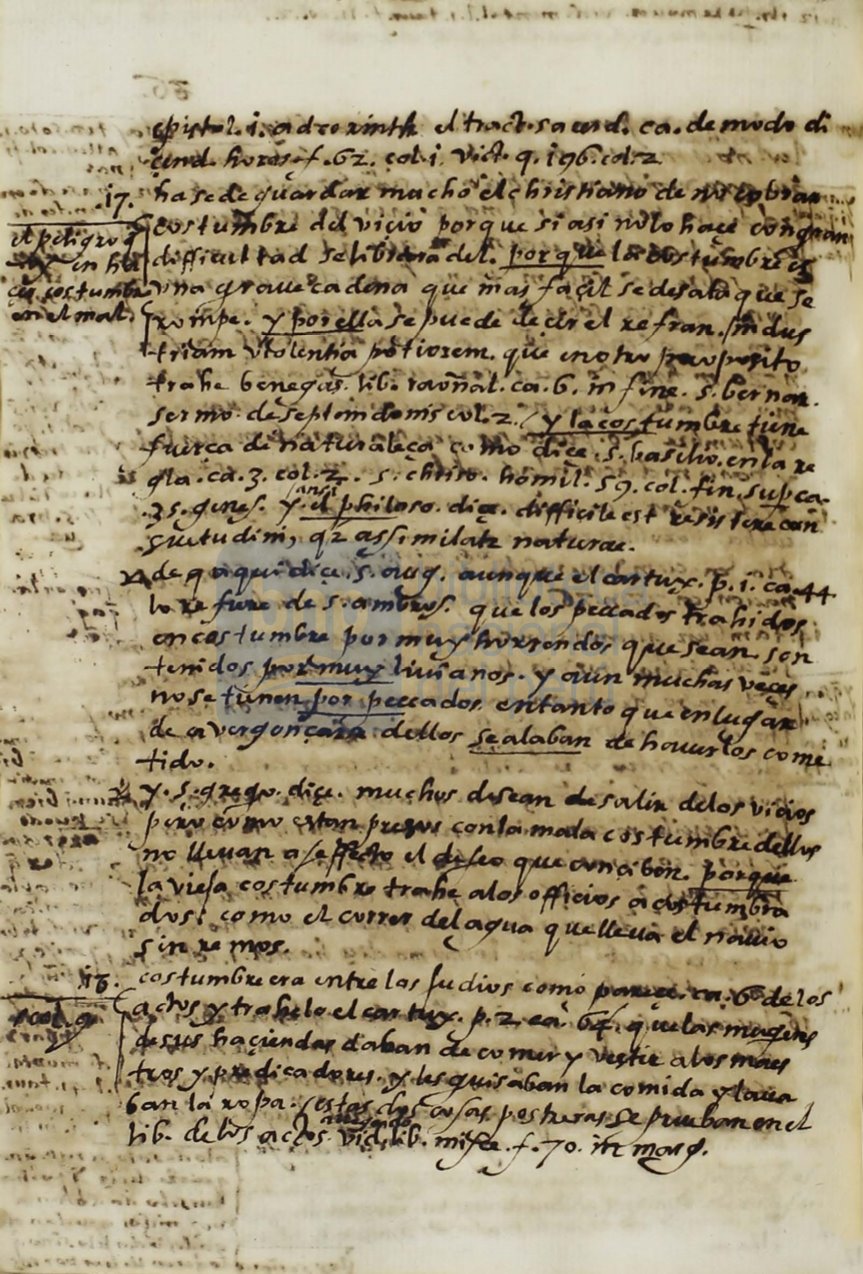 epistol. i. ad corinth el tract. sacerd. ca. de modo di
cend. horas. f. 62. col. i. vict. q. 196. col. 2
17. ha se de guardar mucho el christiano de no cobrar
costumbre del vicio porque si asi no lo hace con gran
el peligro q
difficultad se librara del. porque la costumbre es
ay en ha
una grave cadena que mas facil se desata que se
cer costumbre
rompe. y por ella se puede decir el refran. indus
en el mal.
triam violentia potiorem. que en otro proposito
trahe benegas. lib. ca. 6. in fine. s. bernar.
sermo de septem domis col. 2. y la costumbre tiene
fuerça de naturaleça como dice. s. basilio. en la re
gla. ca. 3. col. 2. s. chriso. homil. 59. col. fin. sup ca.
35. genes. y ansi el philoso. dice. difficile est resistere con
suetudini, qz assimilatr naturae.
de q aqui dice. s. aug. aunque el cartux. p. i. ca. 44
lo refiere de s. ambros. que los peccados trahidos
en costumbre por muy horrendos que sean son
tenidos por muy livianos. y aun muchas veces
no se tienen por peccados. en tanto que en lugar
de avergonçarse dellos se alaban de haverlos come
tido.
y. s. grego. dice. muchos desean de salir de los vicios
pero como estan presos con la mala costumbre dellos
no llevan a effecto el deseo que conciben. porque
la vieja costumbre trahe a los officios acostumbra
dos. como el correr del agua que lleva el navio
sin remos.
18. costumbre era entre los judios como parece. ca. 6. de los
actos y trahelo el cartux. p. 2. ca. 64. que las mugeres
de sus haciendas daban de comer y vestir a los maes
tros y predicadores. y les guisaban la comida y lava
ban la ropa. estas dos cosas postreras se prueban en el
lib. de los actos. vid. lib. f. 70. in marg.